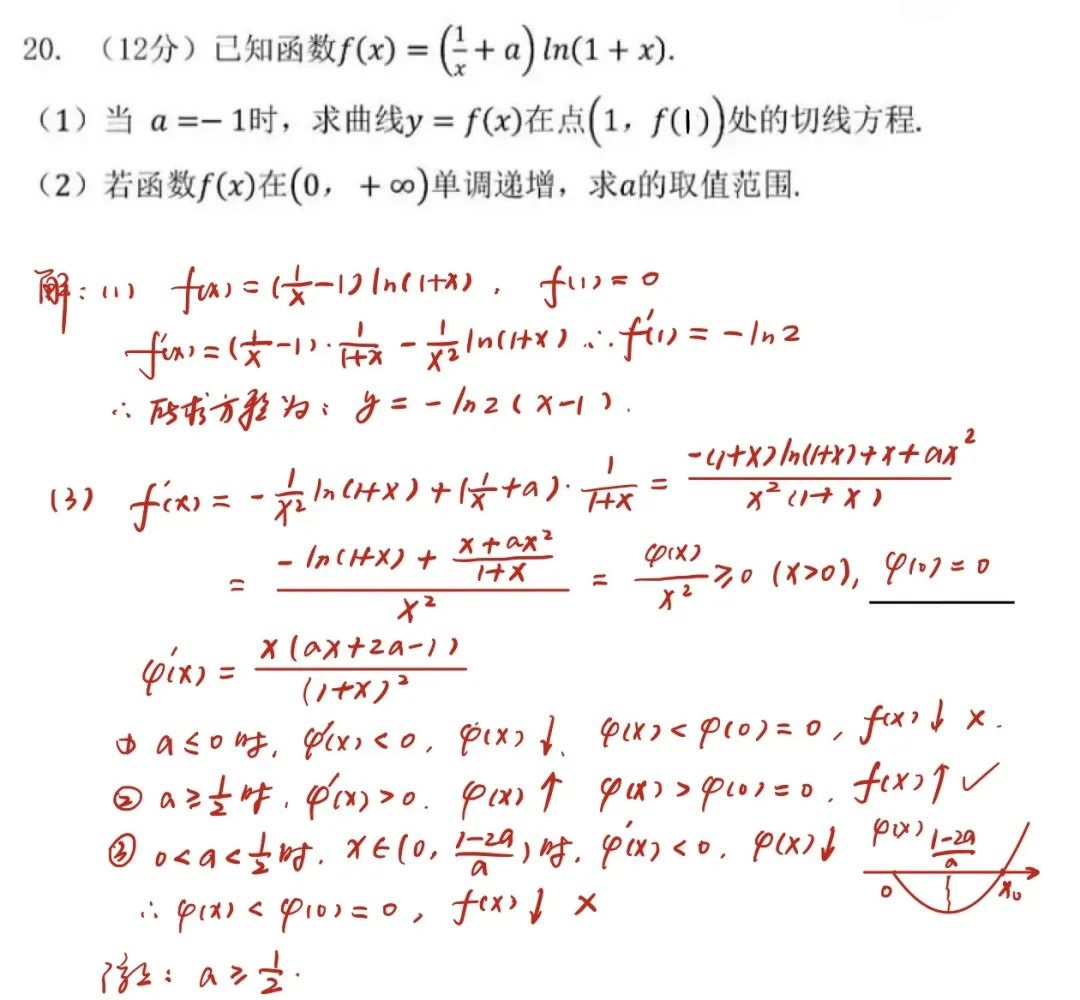 20. （12分）已知函数f(x) = (1/x + a) ln(1 + x).
（1）当 a =− 1时，求曲线y = f(x)在点(1，f(1))处的切线方程.
（2）若函数f(x)在(0，+∞)单调递增，求a的取值范围.
解：(1) f(x) = (1/x −1) ln(1+x)， f(1) = 0
f'(x) = (1/x −1)·1/(1+x) − 1/x² ln(1+x) ∴ f'(1) = −ln2
∴ 所求方程为：y = −ln2 (x−1).
(3) f'(x) = −1/x² ln(1+x) + (1/x + a)·1/(1+x) = (−(1+x)ln(1+x)+x+ax²)/(x²(1+x))
= (−ln(1+x) + (x+ax²)/(1+x))/x² = φ(x)/x² ⩾0 (x>0)， φ(0) = 0
φ'(x) = x(ax+2a−1)/(1+x)²
① a ≤ 0 时, φ'(x) < 0, φ(x)↓, φ(x) < φ(0) = 0, f(x)↓ ×.
② a ⩾ 1/2 时, φ'(x) > 0. φ(x)↑ φ(x) > φ(0) = 0, f(x)↑ ✓
③ 0 < a < 1/2 时, x∈(0, (1−2a)/a) 时, φ'(x) < 0, φ(x)↓ φ(x) (1−2a)/a
0 x₀
∴ φ(x) < φ(0) = 0, f(x)↓ ×
综上：a ⩾ 1/2.